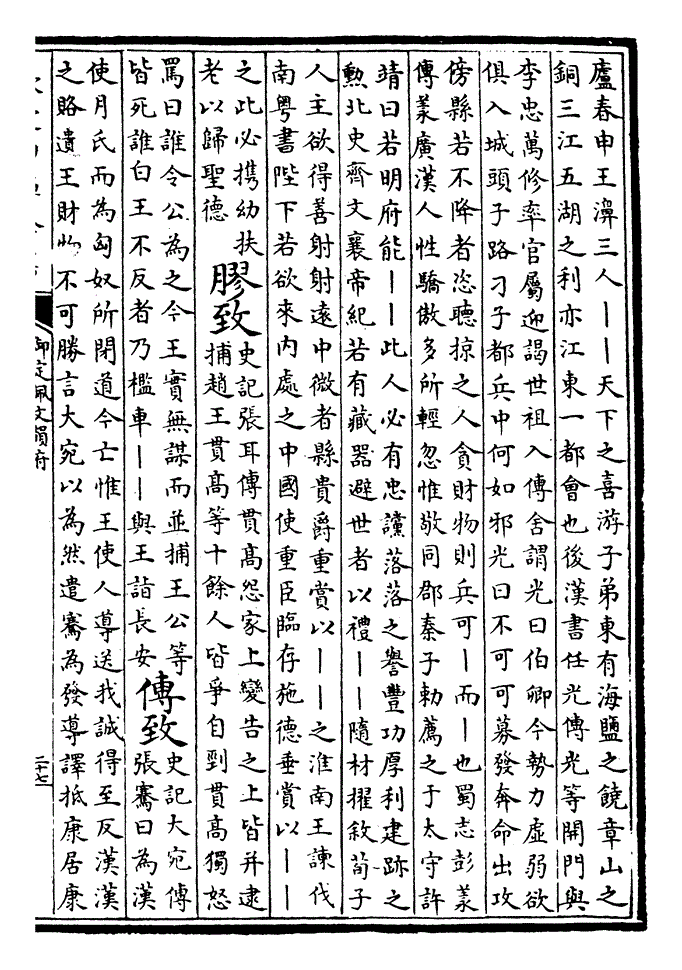 廬春申王濞三人丨丨天下之喜游子弟東有海鹽之饒章山之
銅三江五湖之利亦江東一都會也後漢書任光傳光等開門與
李忠萬修率官屬迎謁世祖入傳舍謂光曰伯卿今勢力虛弱欲
俱入城頭子路刁子都兵中何如邪光曰不可可募發奔命出攻
傍縣若不降者恣聽掠之人貪財物則兵可丨而丨也蜀志彭羕
傳羕廣漢人性驕傲多所輕忽惟敬同郡秦子勅薦之于太守許
靖曰若明府能丨丨此人必有忠讜落落之譽豐功厚利建跡之
勲北史齊文襄帝紀若有藏器避世者以禮丨丨隨材擢敘荀子
人主欲得善射射遠中微者縣貴爵重賞以丨丨之淮南王諫伐
南粤書陛下若欲來內處之中國使重臣臨存施德垂賞以丨丨
之此必攜幼扶
老以歸聖德
膠致
史記張耳傳貫高怨家上變告之上皆并逮
捕趙王貫高等十餘人皆爭自剄貫高獨怒
罵曰誰令公為之今王實無謀而並捕王公等
皆死誰白王不反者乃檻車丨丨與王詣長安
傳致
史記大宛傳
張騫曰為漢
使月氏而為匈奴所閉道今亡惟王使人導送我誠得至反漢漢
之賂遺王財物不可勝言大宛以為然遣騫為發導譯抵康居康
御定佩文韻府
二十七